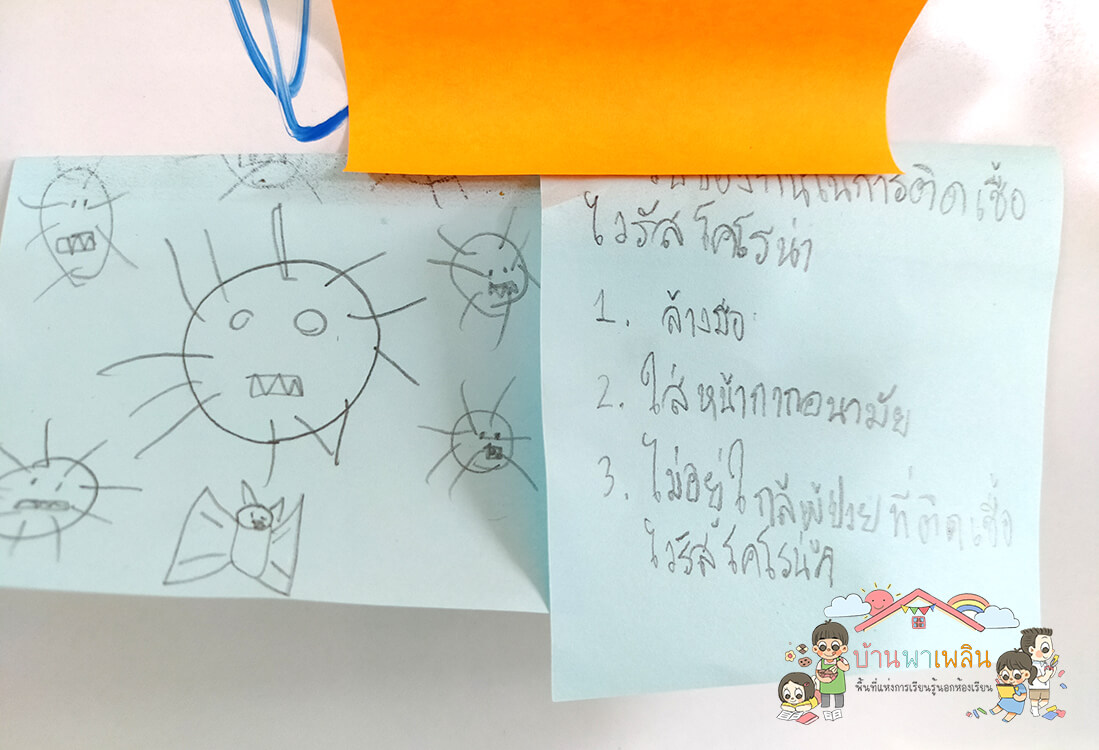 ป้องกันในการติดเชื้อ
ไวรัสโคโรน่า
1. ล้างมือ
2. ใส่หน้ากากอนามัย
3. ไม่อยู่ใกล้ผู้ป่วยที่ติดเชื้อ
ไวรัสโคโรน่า
บ้านพาเพลิน
พื้นที่แห่งการเรียนรู้นอกห้องเรียน